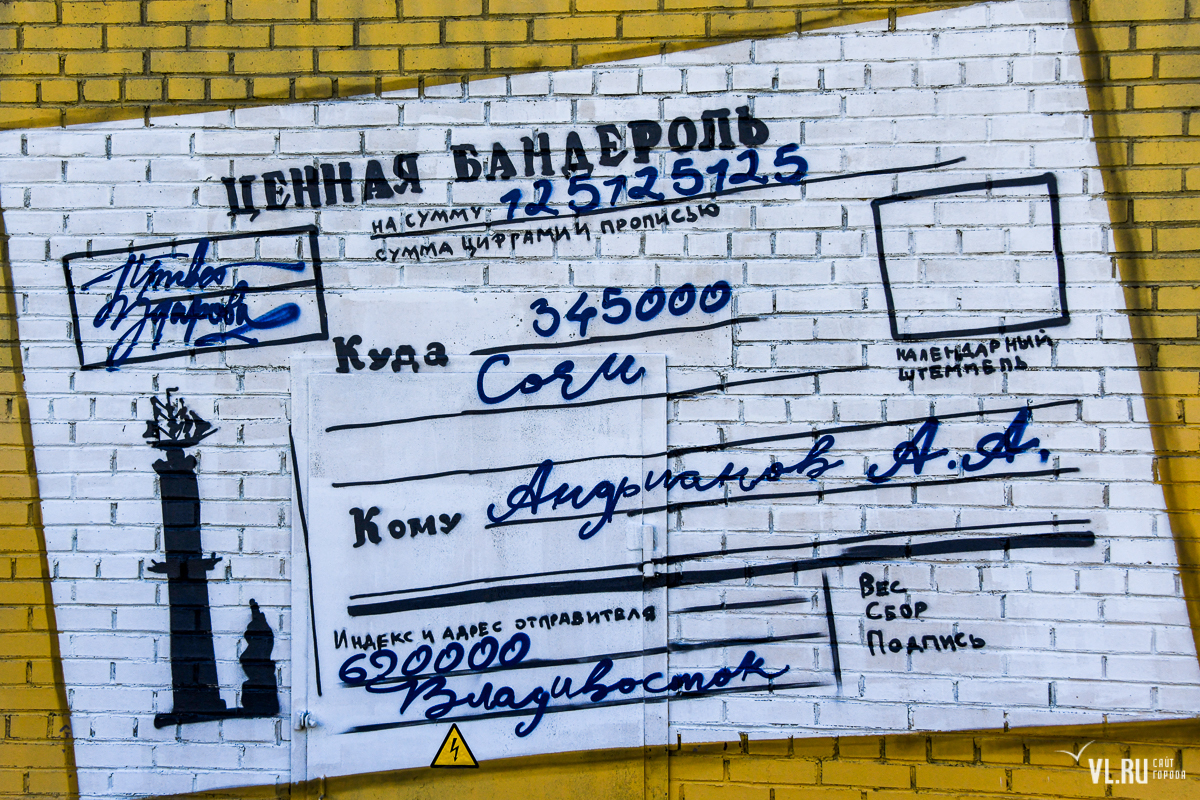 ЦЕННАЯ БАНДЕРОЛЬ
НА СУММУ 125125125
СУММА ЦИФРАМИ И ПРОПИСЬЮ
345000
Куда
Сочи
КАЛЕНДАРНЫЙ
ШТЕМПЕЛЬ
Кому Андрианов А.А.
ИНДЕКС И АДРЕС ОТПРАВИТЕЛЯ
690000
Владивосток
ВЕС
СБОР
ПОДПИСЬ
VL.RU САЙТ ГОРОДА